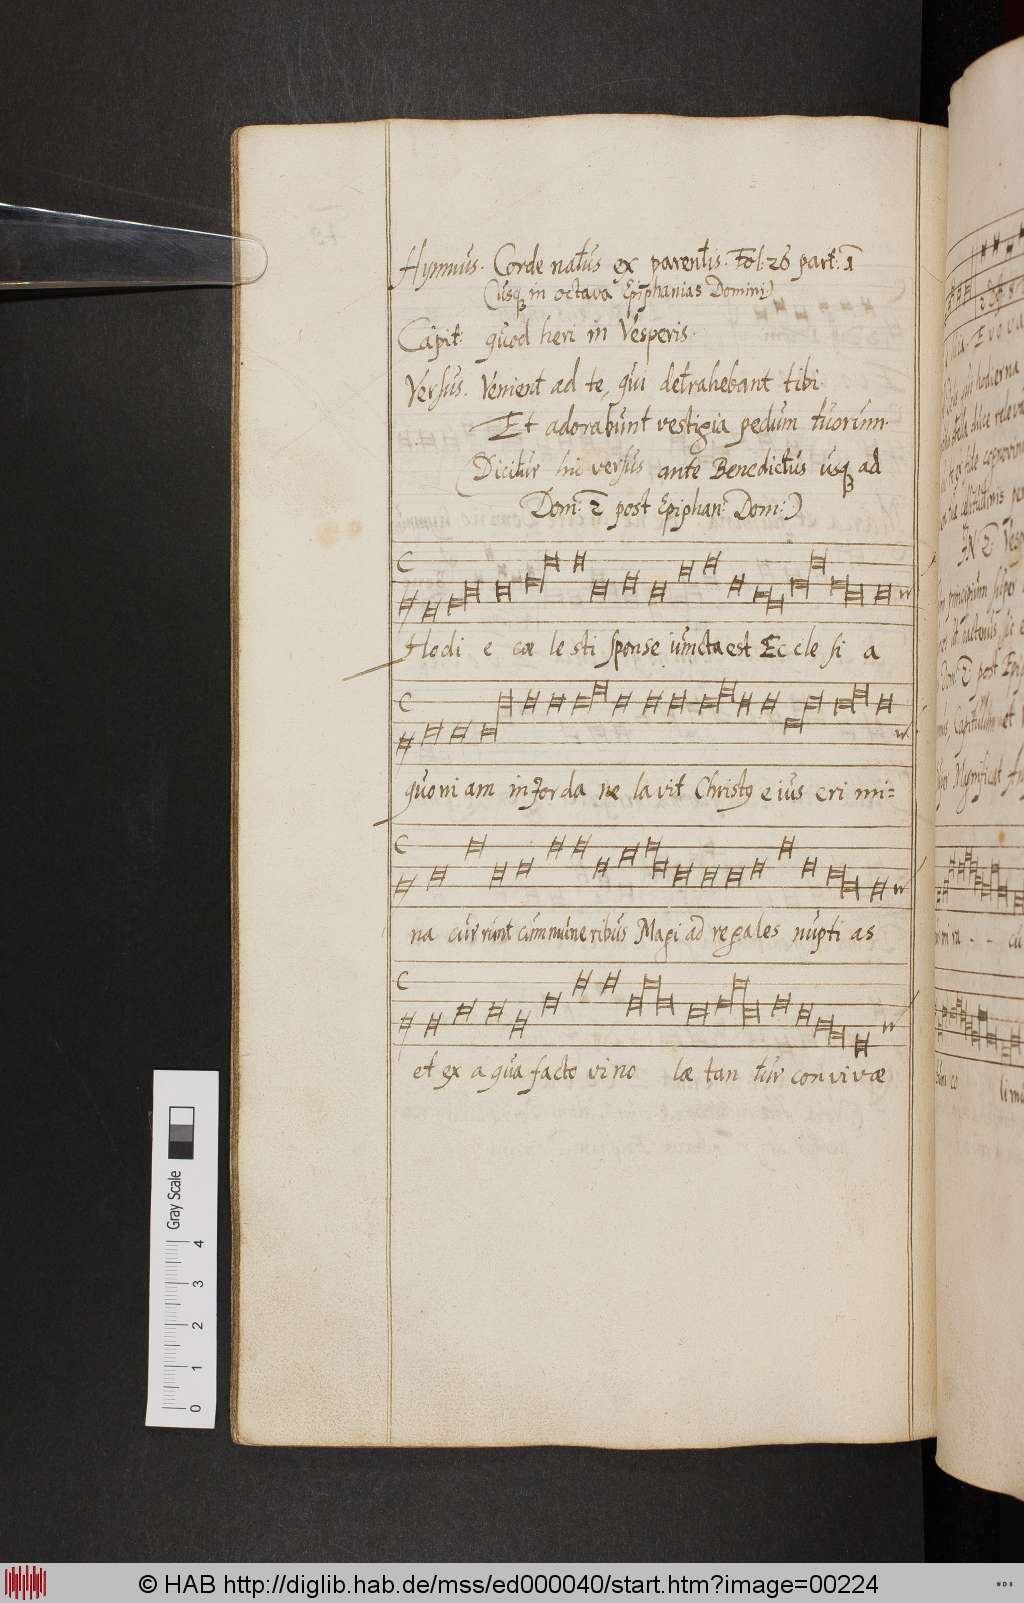 Hymnus. Corde natus ex parentis. Fol. 26 part. 1
(usq in octava Epiphanias Domini)
Capit: quod heri in Vesperis.
Versus. Venient ad te, qui detrahebant tibi.
Et adorabunt vestigia pedum tuorum.
(Dicitur hic versus ante Benedictus usq ad
Dom: 2 post Epiphan: Dom:)
Hodi e cœ le sti sponse iuncta est Ec cle si a
quoni am in Jorda ne la vit Christꝰ e ius cri mi=
na currunt cum mune ribus Magi ad regales nupti as
et ex a qua facto vino læ tan tur convivæ
Gray Scale
0 1 2 3 4
© HAB http://diglib.hab.de/mss/ed000040/start.htm?image=00224